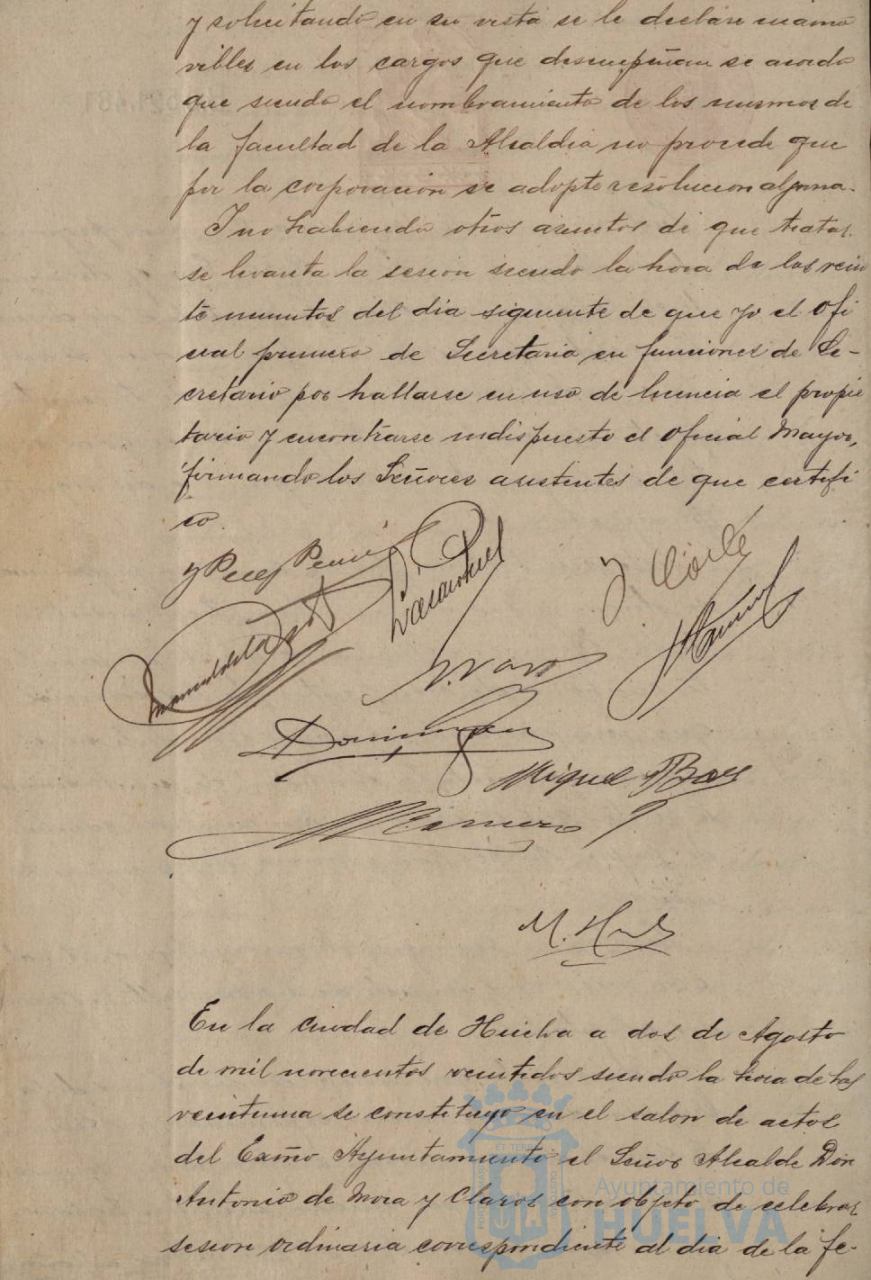 y solicitando en su vista se le declare inamo
vibles en los cargos que desempeñan se acordo
que siendo el nombramiento de los mismos de
la facultad de la Alcaldia no procede que
por la corporación se adopte resolucion alguna.
Y no habiendo otros asuntos de que tratar
se levanta la sesion siendo la hora de las vein
te minutos del dia siguiente de que yo el Ofi
cial primero de Secretaria en funciones de Se-
cretario por hallarse en uso de licencia el propie
tario y encontrarse indispuesto el Oficial Mayor,
firmando los Señores asistentes de que certifi
co.
Dominguez
Miguel
M.
En la ciudad de Huelva a dos de Agosto
de mil novecientos veintidos siendo la hora de las
veintiuna se constituyo en el salon de actos
del Exmo Ayuntamiento el Señor Alcalde Don
Antonio de Mora y Claros con objeto de celebrar
sesion ordinaria correspondiente al dia de la fe-
Ayuntamiento de
HUELVA